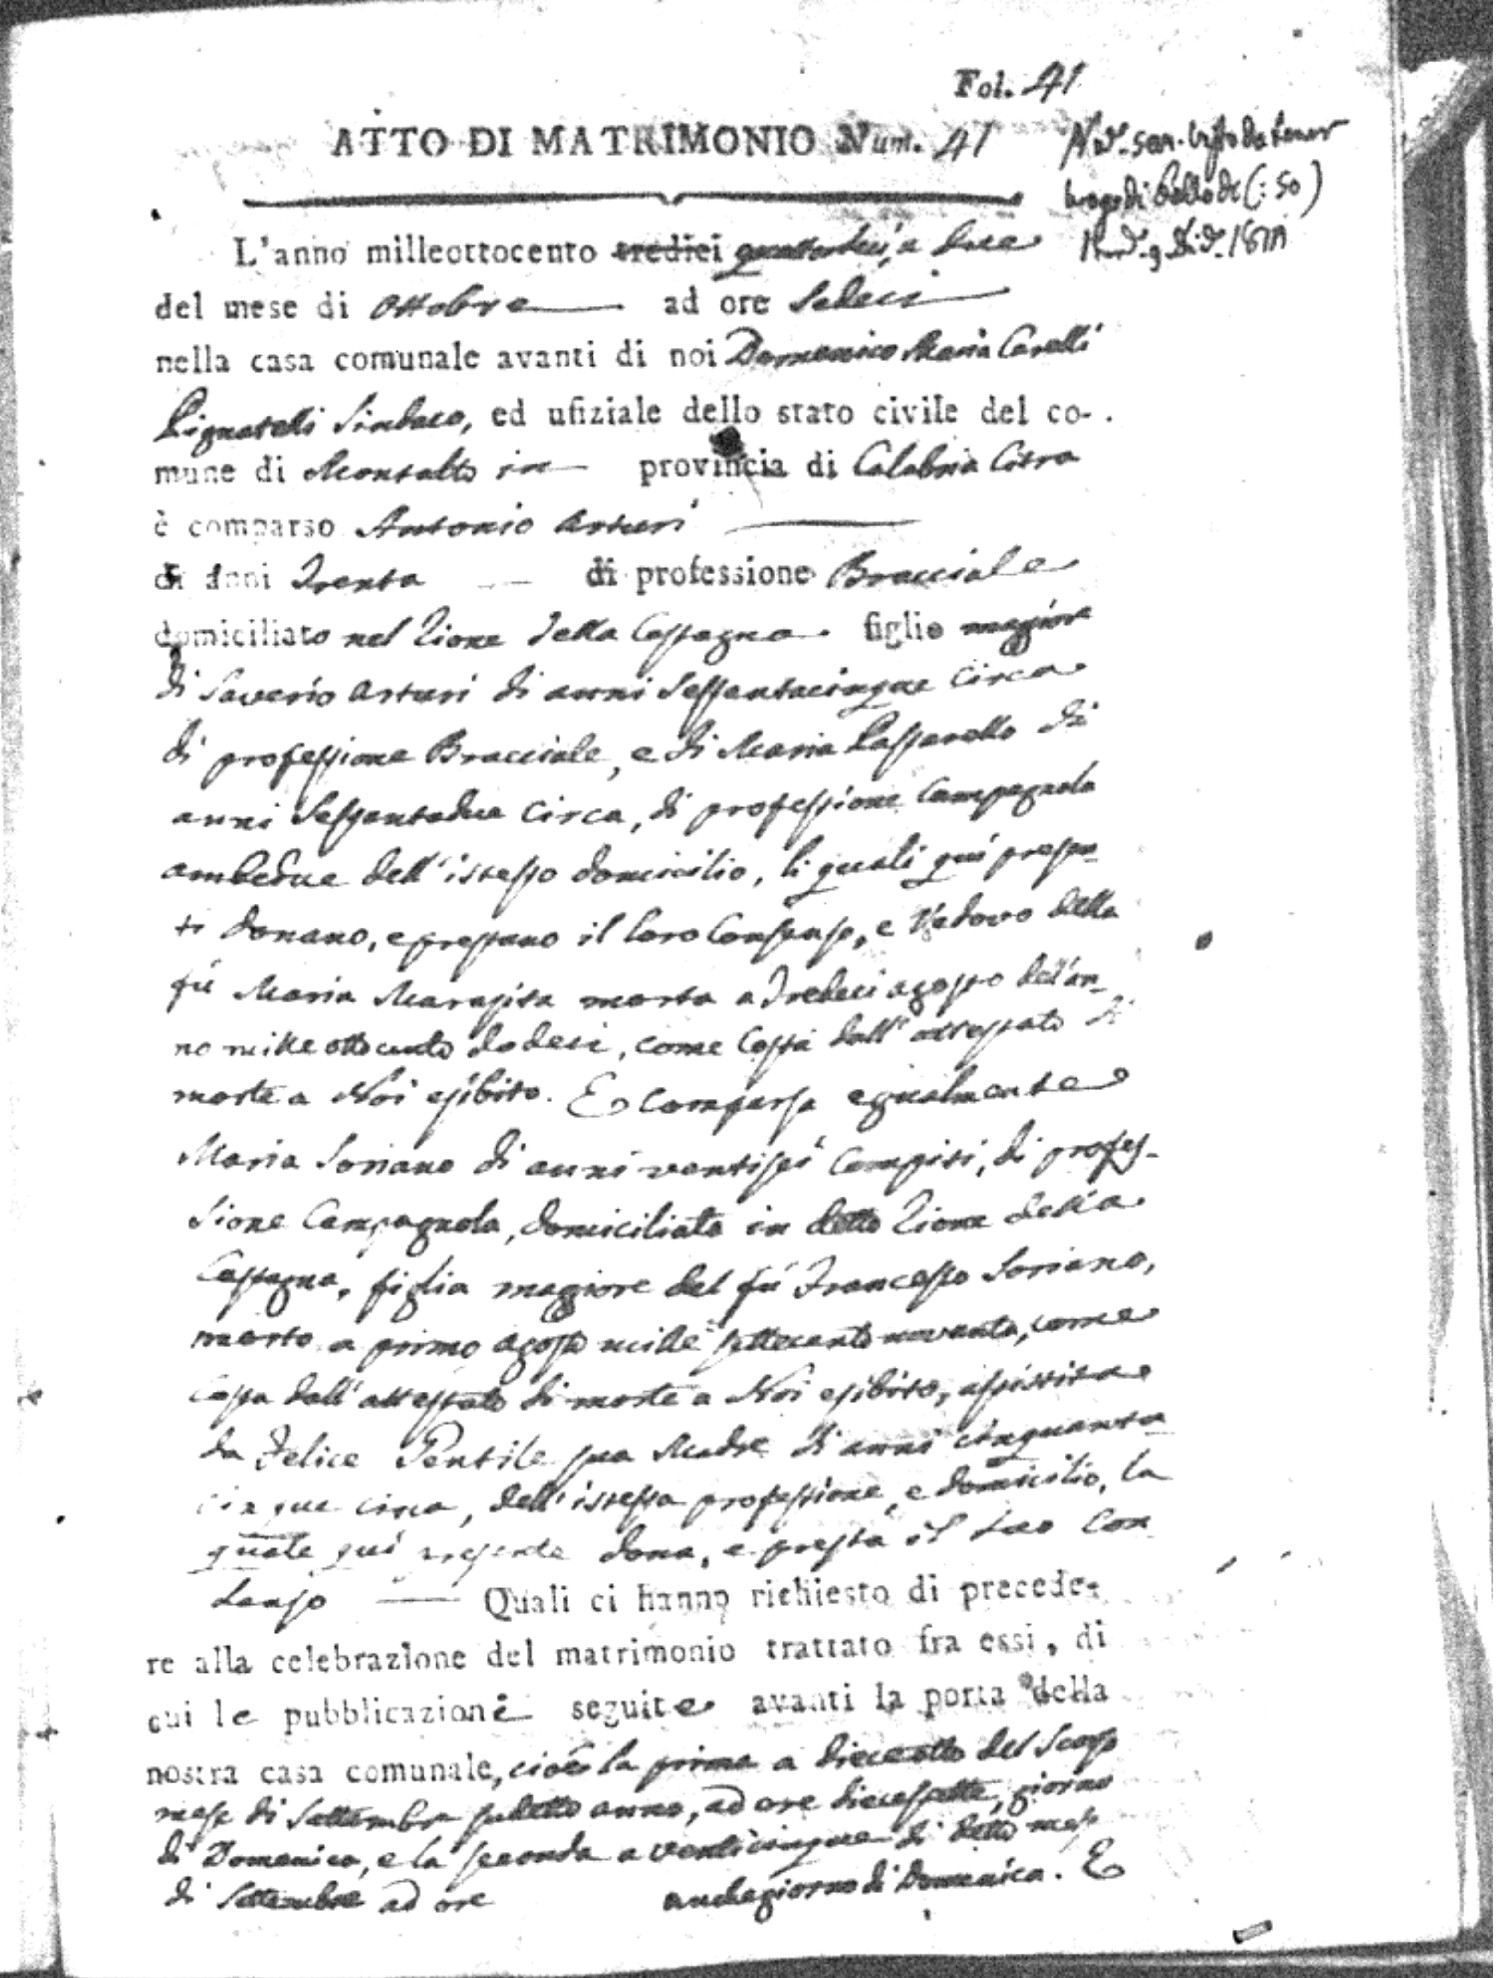 Fol. 41
ATTO DI MATRIMONIO Num. 41
L'anno milleottocento tredici quattordeci, a
del mese di Ottobre ad ore Sedeci
nella casa comunale avanti di noi Domenico Maria Carelli
Pignatelli Sindaco, ed ufiziale dello stato civile del co-
mune di Montalto in provincia di Calabria Citra
è comparso Antonio Arturi
di anni Trenta di professione Bracciale
domiciliato nel Rione della Castagna figlio maggiore
di Saverio Arturi di anni Sessantacinque circa
di professione Bracciale, e di Maria Passarello di
anni Sessantadue circa, di professione Campagnola
ambedue dell'istesso domicilio, li quali quì presen
ti donano, e prestano il loro Consenso, e Vedovo della
fù Maria morta a Tredeci agosto dell'an-
no mille ottocento dodeci, come Costa dall'attestato di
morte a Noi esibito. E comparsa egualmente
Maria Soriano di anni ventisei Compiti, di profes-
sione Campagnola, domiciliata in detto Rione della
Castagna, figlia maggiore del fù Francesco Soriano,
morto a primo agosto mille settecento novanta, come
Costa dall'attestato di morte a Noi esibito, assistita
da Felice Gentile sua Madre di anni cinquanta
cinque circa, dell'istessa professione, e domicilio, la
quale quì presente dona, e presta il suo Con
senso Quali ci hanno richiesto di precede-
re alla celebrazione del matrimonio trattato fra essi, di
cui le pubblicazioni seguite avanti la porta della
nostra casa comunale, cioè la prima a dieceotto del scorso
mese di Settembre sudetto anno, ad ore diecesette, giorno
di Domenica, e la seconda a venticinque di detto mese
di Settembre ad ore anche giorno di Domenica. E